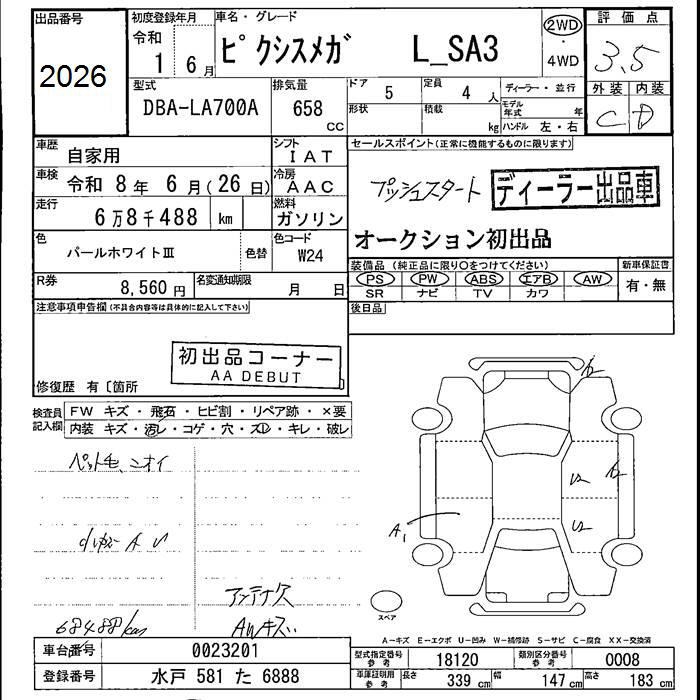 出品番号
2026
初度登録年月
令和
1 6月
車名・グレード
ピクシスメガ L_SA3
2WD
・
4WD
評価点
3.5
外装 内装
C D
型式
DBA-LA700A
排気量
658
cc
ドア
5
定員
4 人
ディーラー・並行
形状
積載
kg
モデル年式 年
ハンドル 左・右
車歴
自家用
シフト
IAT
車検
令和 8年 6月(26日)
冷房
AAC
走行
6万8千488 km
燃料
ガソリン
色
パールホワイトⅢ
色替
色コード
W24
R券
8,560 円
名変通知期限
月 日
セールスポイント(正常に機能するものに限ります)
プッシュスタート
ディーラー出品車
オークション初出品
装備品(純正品に限り○をつけてください)
PS PW ABS エアB AW
SR ナビ TV カワ
新車保証書
有・無
後日品
注意事項申告欄(不具合内容等は具体的に記入して下さい)
初出品コーナー
AA DEBUT
修復歴 有〔箇所
検査員
記入欄
FW キズ・飛石・ヒビ割・リペア跡・×要
内装 キズ・汚レ・コゲ・穴・ズレ・キレ・破レ
ペット毛、ニオイ
A U
アンテナ欠
68488km
AWキズ
A1
U2
U2
スペア
A-キズ E-エクボ U-凹み W-補修跡 S-サビ C-腐食 XX-交換済
車台番号
0023201
登録番号
水戸 581 た 6888
型式指定番号
参考
18120
類別区分番号
参考
0008
車庫証明用
参考
長さ 339 cm 幅 147 cm 高さ 183 cm